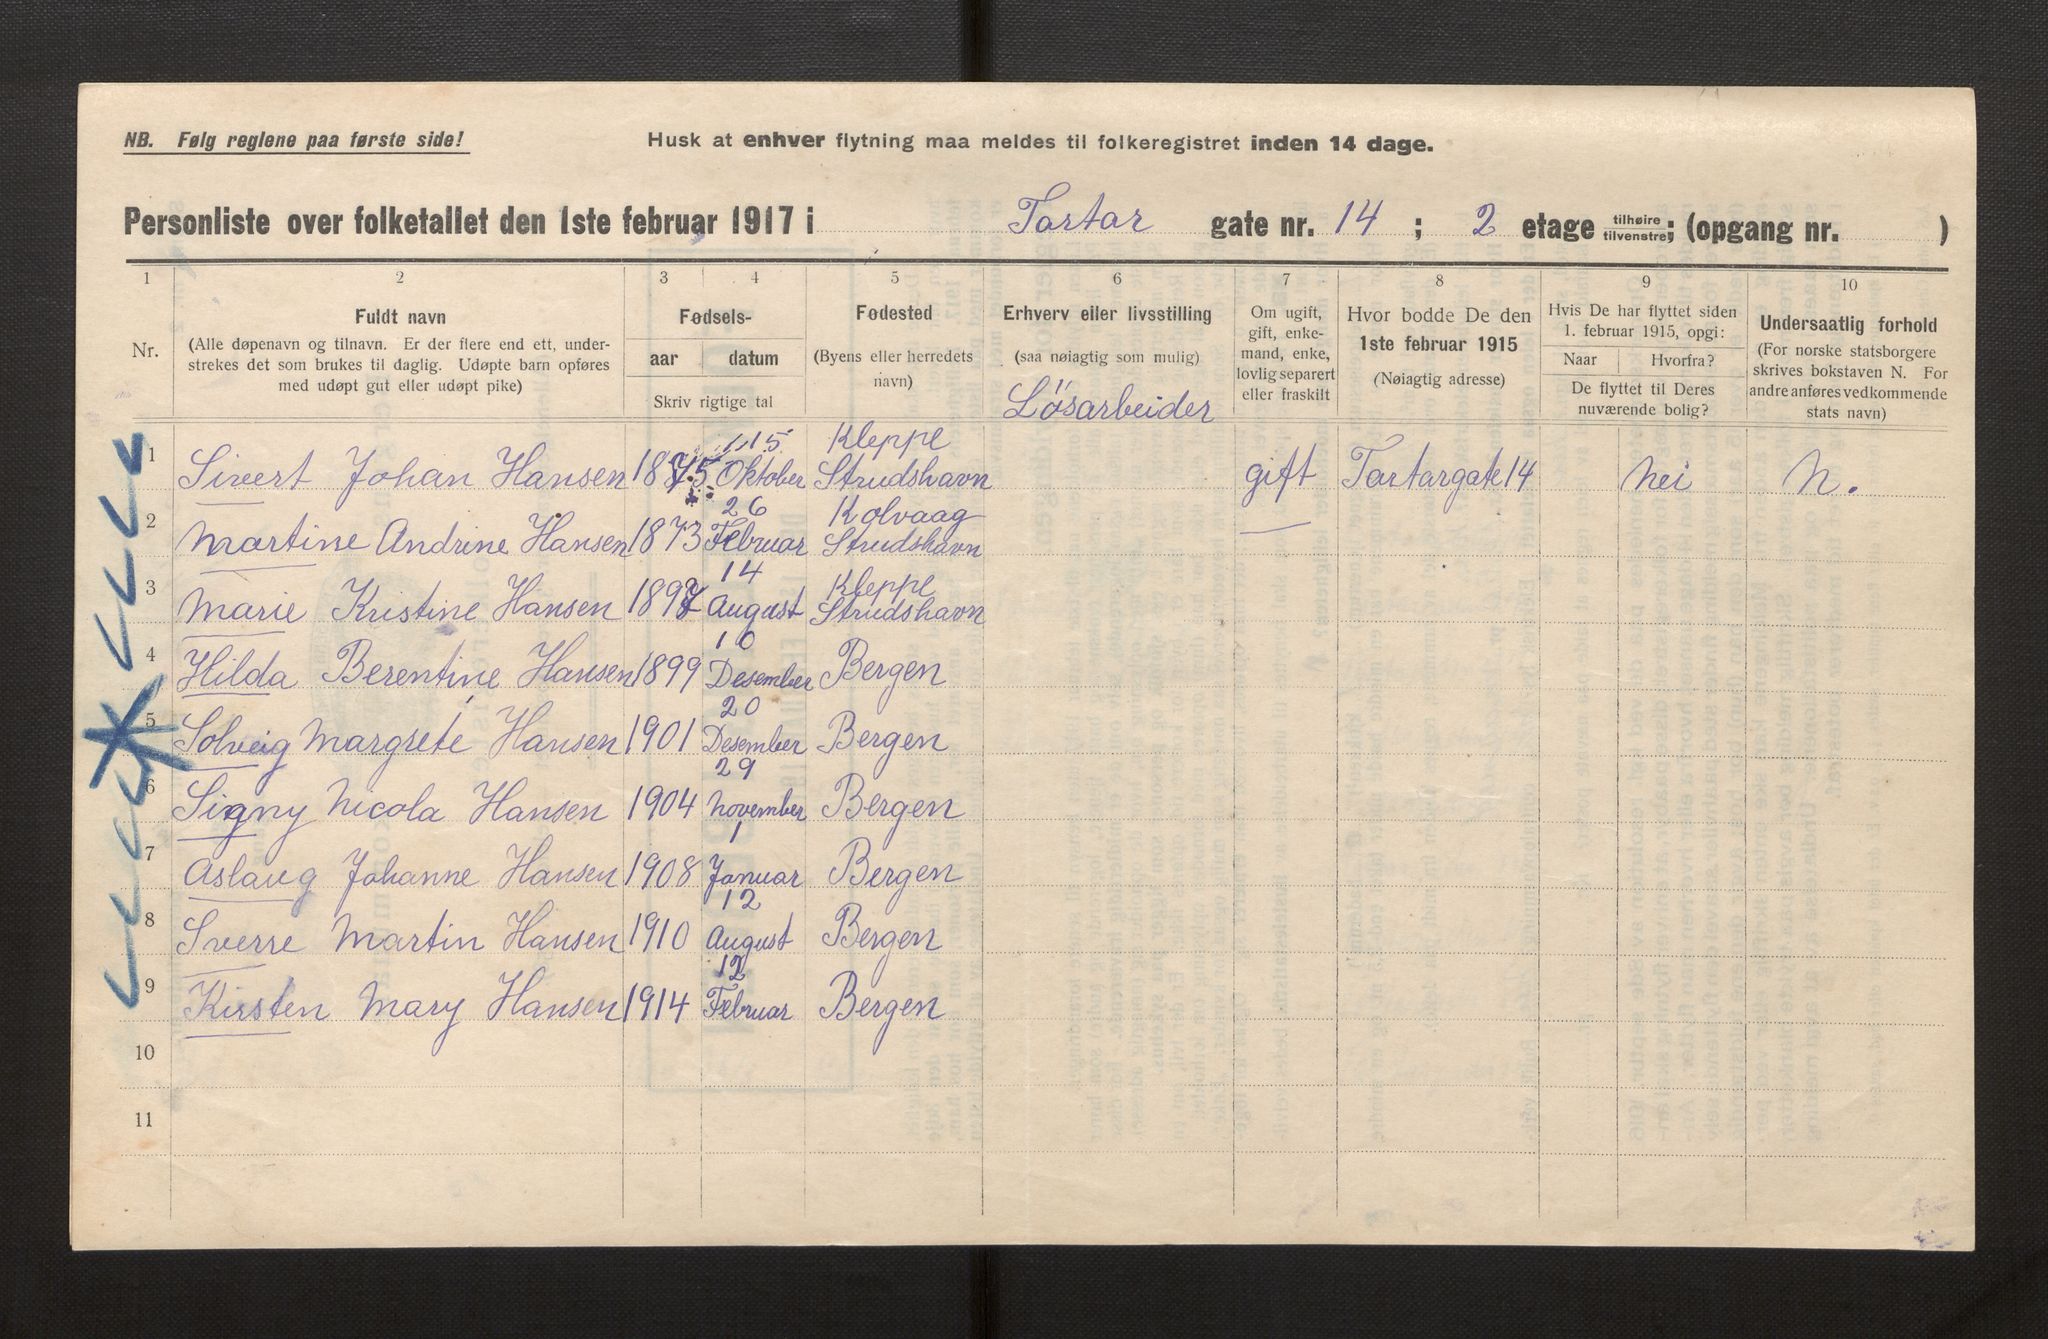 NB. Følg reglene paa første side!
Husk at enhver flytning maa meldes til folkeregistret inden 14 dage.
Personliste over folketallet den 1ste februar 1917 i Tartar gate nr. 14 ; 2 etage tilhøire tilvenstre; (opgang nr. )
1 2 3 4 5 6 7 8 9 10
Nr.
Fuldt navn
(Alle døpenavn og tilnavn. Er der flere end ett, under-
strekes det som brukes til daglig. Udøpte barn opføres
med udøpt gut eller udøpt pike)
Fødsels-
aar datum
Skriv rigtige tal
Fødested
(Byens eller herredets
navn)
Erhverv eller livsstilling
(saa nøiagtig som mulig)
Om ugift,
gift, enke-
mand, enke,
lovlig separert
eller fraskilt
Hvor bodde De den
1ste februar 1915
(Nøiagtig adresse)
Hvis De har flyttet siden
1. februar 1915, opgi:
Naar Hvorfra?
De flyttet til Deres
nuværende bolig?
Undersaatlig forhold
(For norske statsborgere
skrives bokstaven N. For
andre anføres vedkommende
stats navn)
Lösarbeider
15 Kleppe
1 Sivert Johan Hansen 1875 Oktober Strudshavn gift Tartargate 14 Nei N.
26 Kolvaag
2 Martine Andrine Hansen 1873 Februar Strudshavn
14 Kleppe
3 Marie Kristine Hansen 1897 August Strudshavn
10
4 Hilda Berentine Hansen 1899 Desember Bergen
20
5 Solveig Margrete Hansen 1901 Desember Bergen
29
6 Signy Nicola Hansen 1904 November Bergen
1
7 Aslaug Johanne Hansen 1908 Januar Bergen
12
8 Sverre Martin Hansen 1910 August Bergen
12
9 Kirsten Mary Hansen 1914 Februar Bergen
10
11